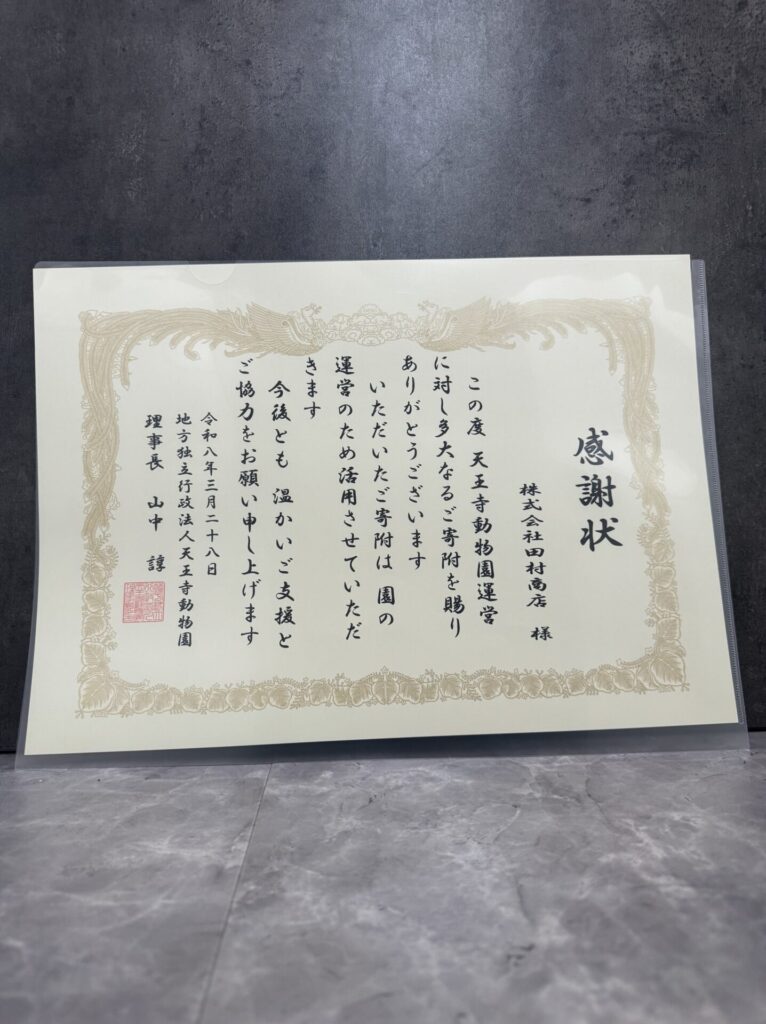 感謝状
株式会社田村商店　様
この度　天王寺動物園運営
に対し多大なるご寄附を賜り
ありがとうございます
いただいたご寄附は　園の
運営のため活用させていただ
きます
今後とも　温かいご支援と
ご協力をお願い申し上げます
令和八年三月二十八日
地方独立行政法人天王寺動物園
理事長　山中　諄